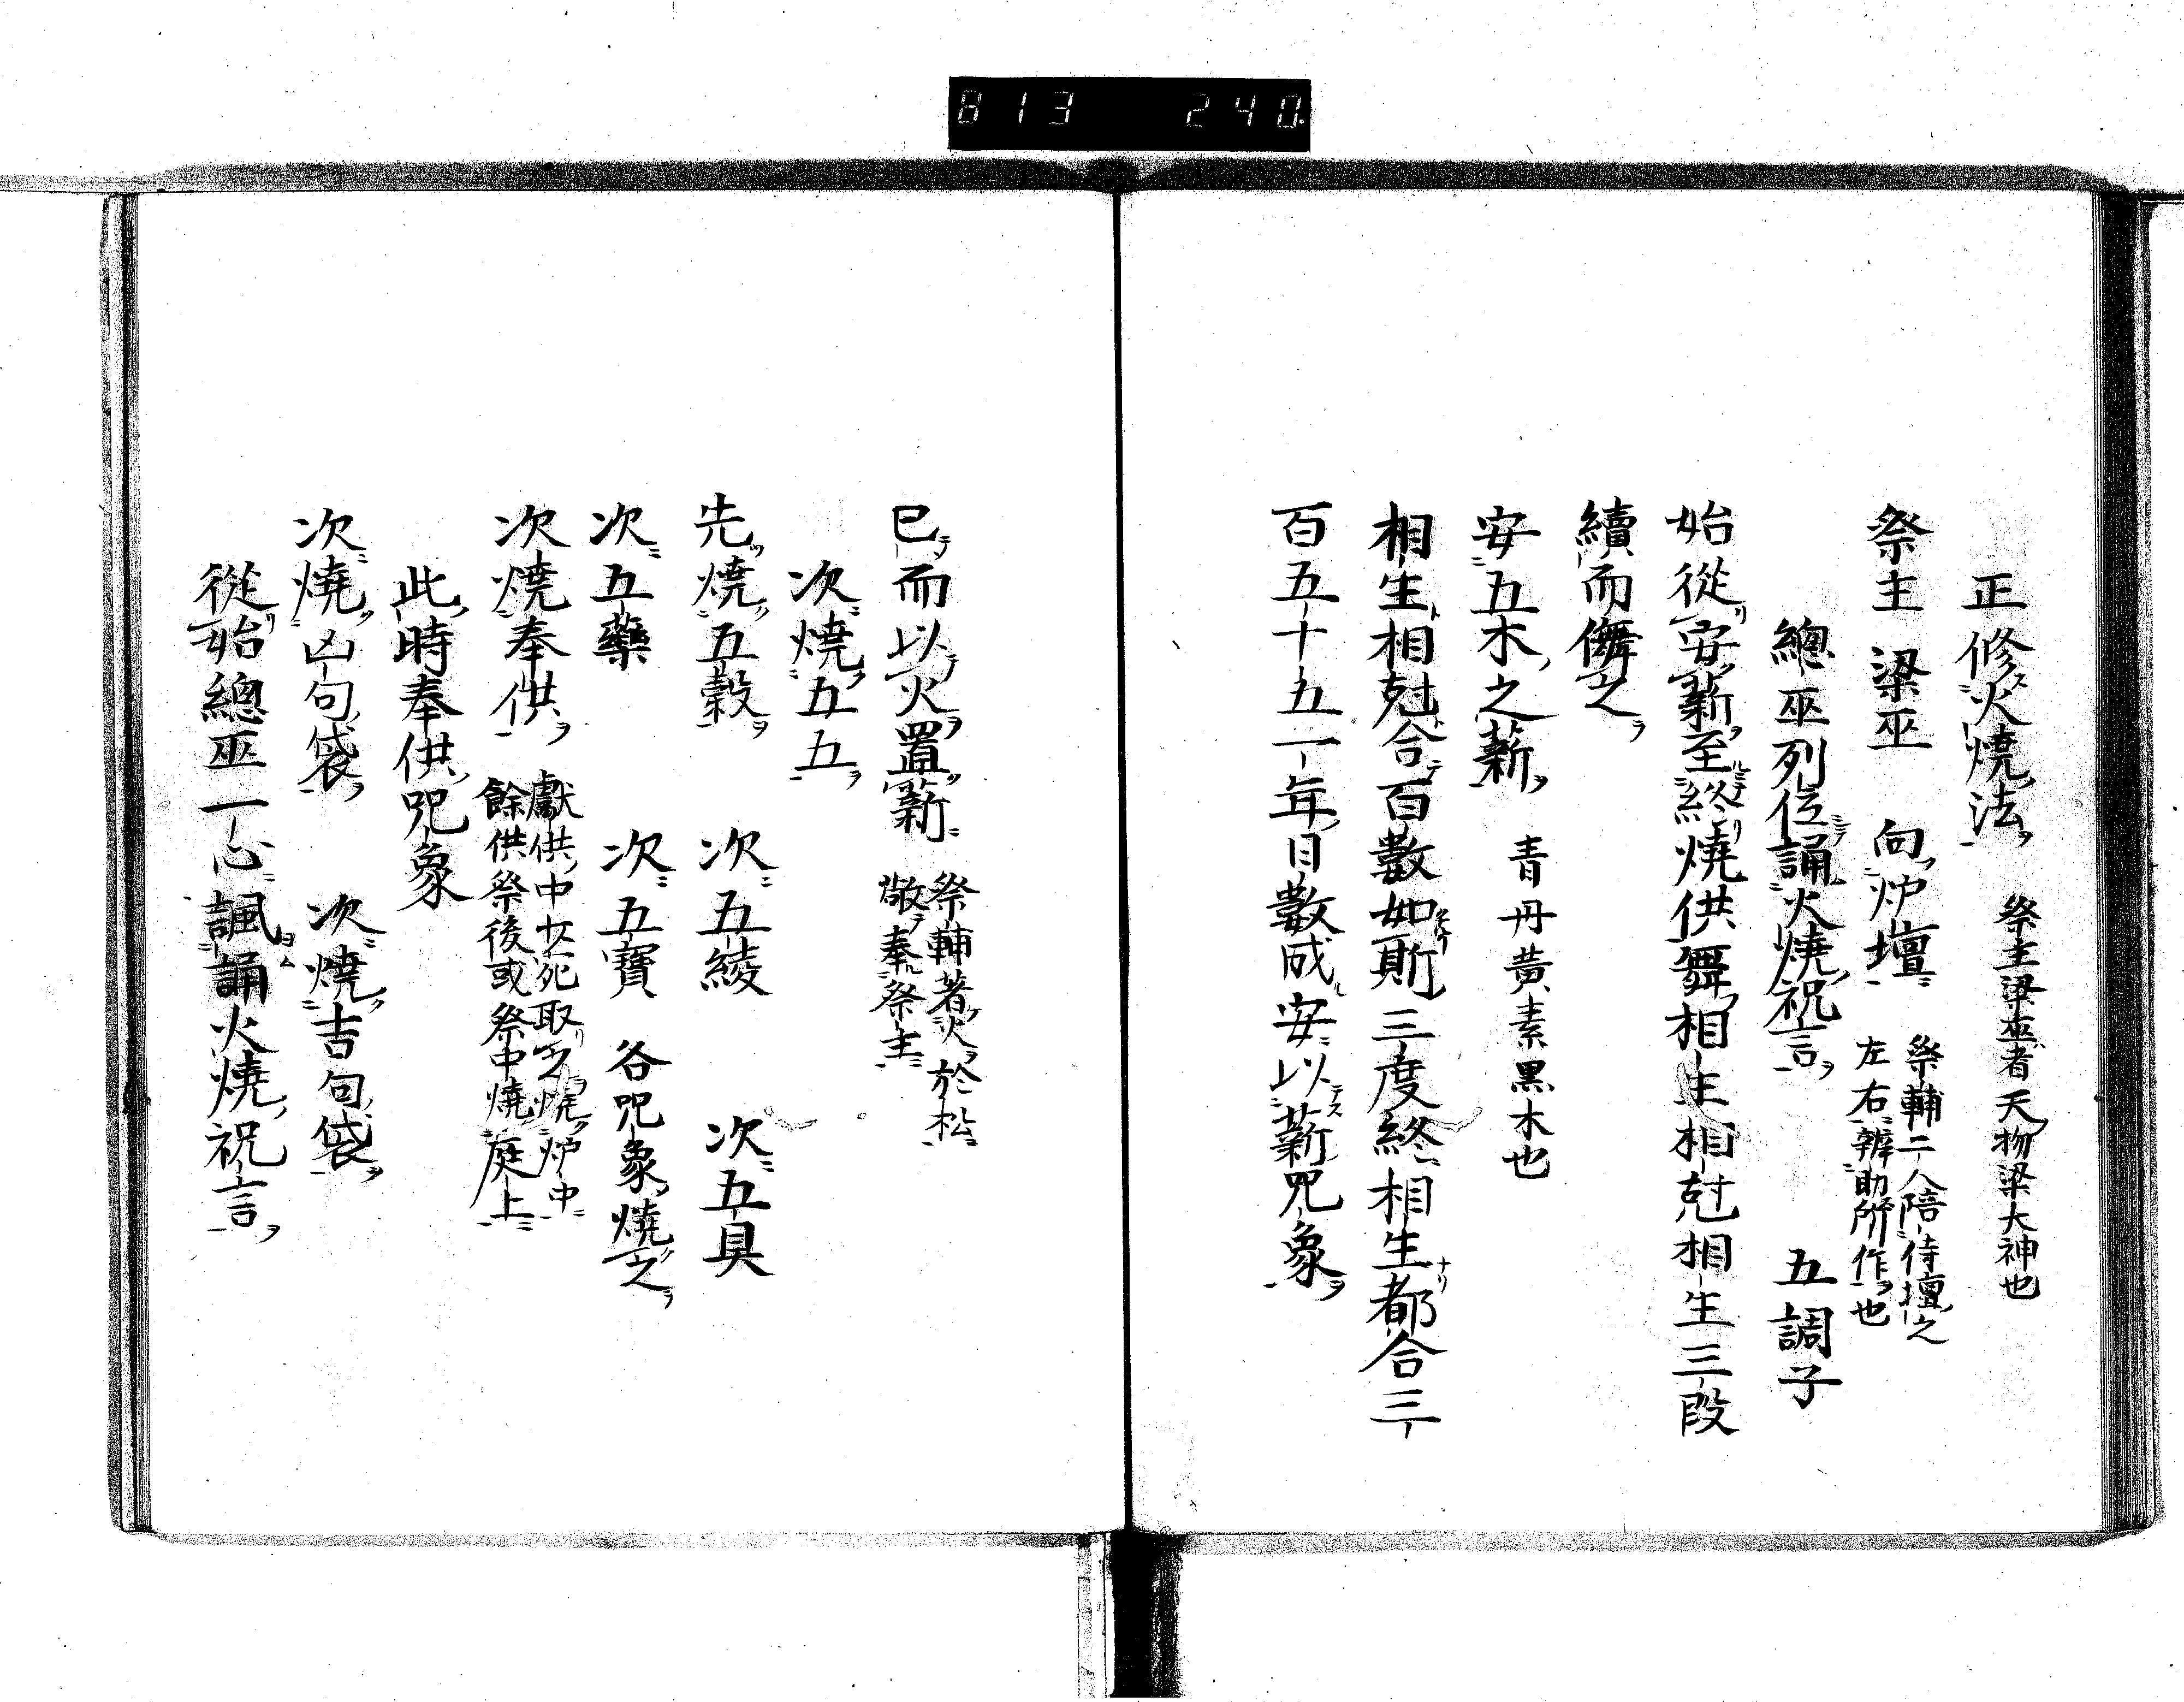 813 240
正修火焼法 祭主梁巫者天物梁大神也
祭主 梁巫 向炉壇 祭輔二人陪侍壇之
左右辨助所作也
總巫列位誦火焼祝言 五調子
始從安薪至終燒供舞相生相尅相生三段
續而儛之
安五木之薪 青丹黄素黒木也
相生相尅合百數如斯三度終相生都合三
百五十五一年日數成安以薪咒象
已而以火置薪 祭輔著火於松
敬奉祭主
次燒五五
先燒五穀 次五綾 次五具
次五藥 次五寶 各咒象燒之
次燒奉供 獻供中 取之燒炉中
餘供祭後或祭中燒庭上
此時奉供咒象
次燒凶句袋 次燒吉句袋
從始總巫一心諷誦火燒祝言